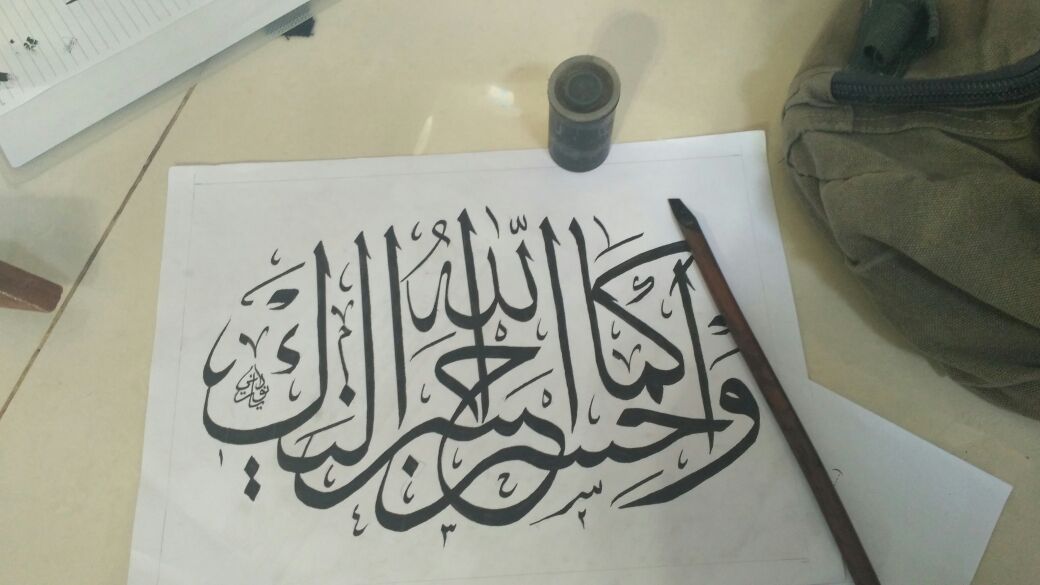 وأحسن كما أحسن الله إليك